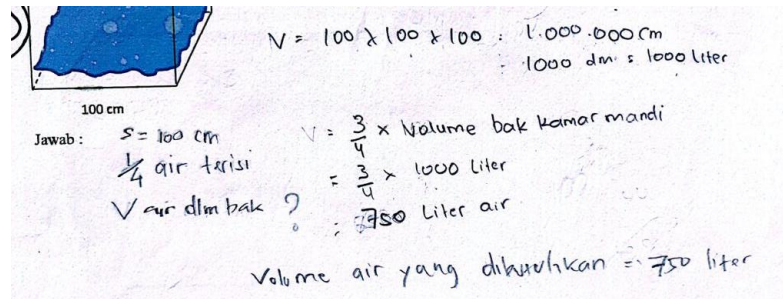 V = 100 x 100 x 100 : 1.000.000 cm
: 1000 dm : 1000 liter
100 cm
Jawab : S = 100 cm
1/4 air terisi
V air dlm bak ?
V = 3/4 x Volume bak kamar mandi
= 3/4 x 1000 Liter
: 750 Liter air
Volume air yang dibutuhkan = 750 liter